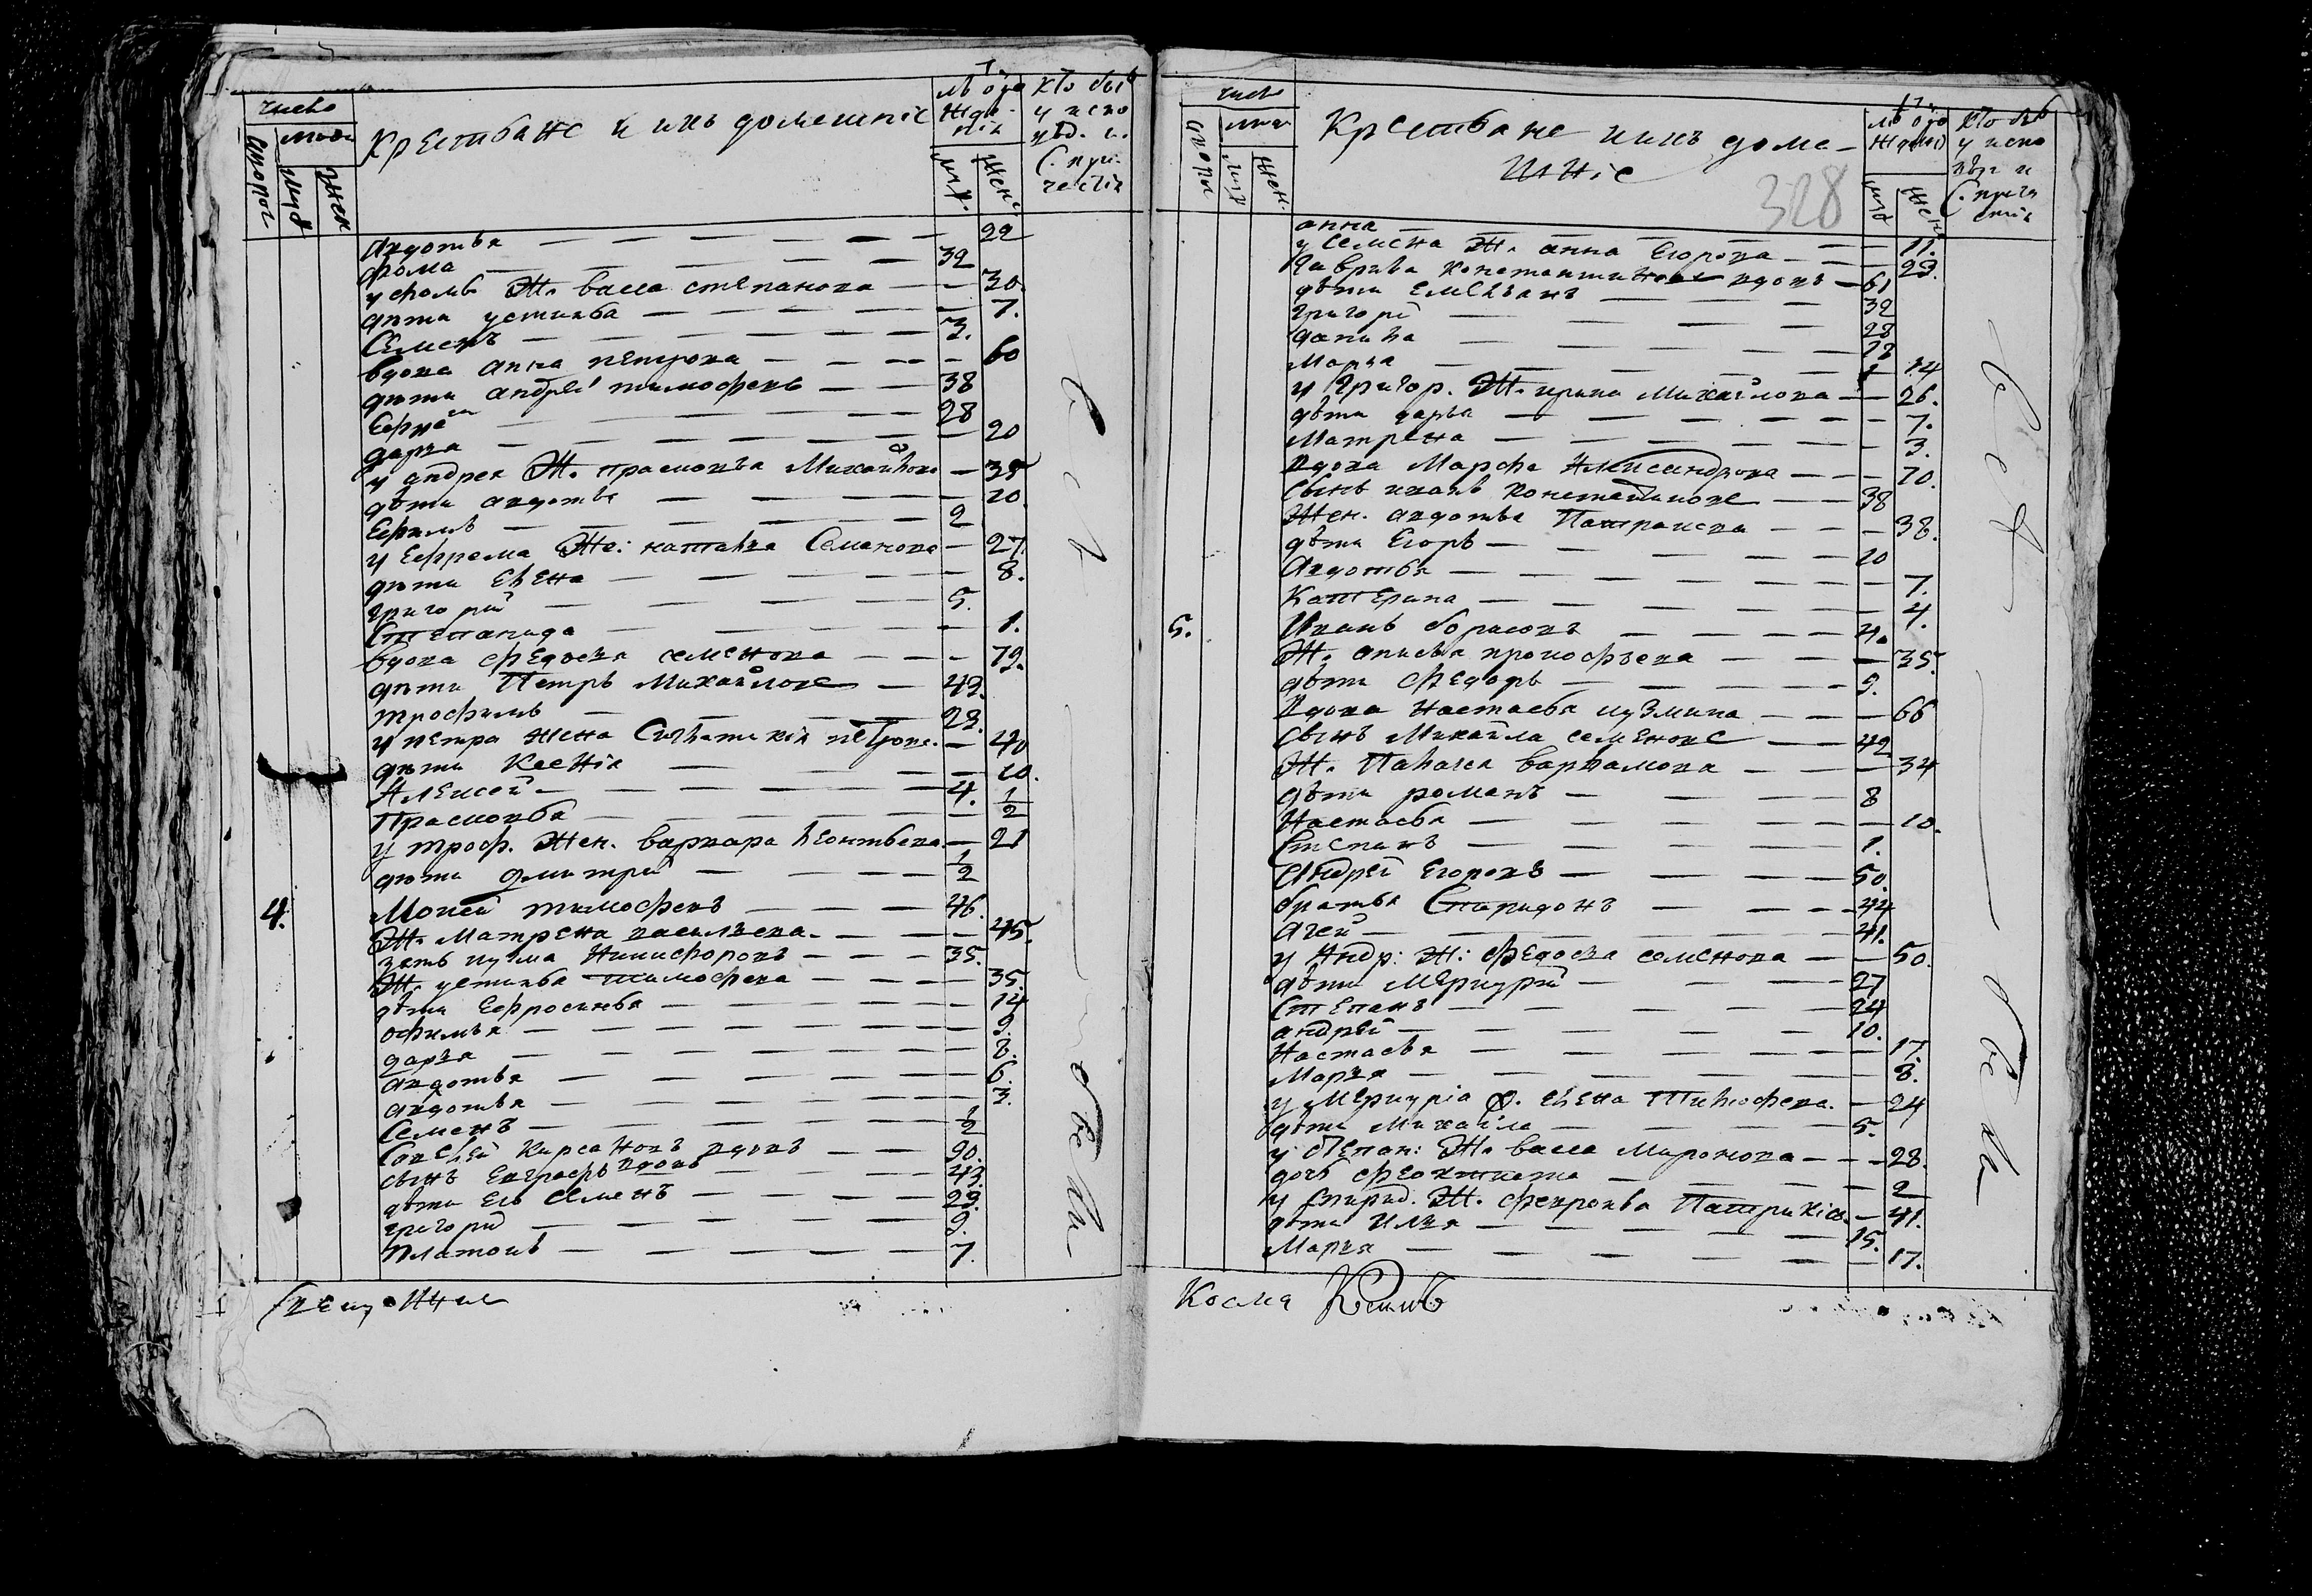 число
двор
людей
муж
жен
Крестьяне и ихъ домашніе
лѣта рожденія
муж.
жен.
кто былъ у исповѣд. и С. причастія
Авдотья — 22
Фома — 32
у Фомы Ж. васса степанова — 30.
дѣти устинья — 7.
Семенъ — 3.
вдова анна петрова — 60
дѣти андрей тимофеевъ — 38
Ефремъ — 28
дарья — 20
у андрея Ж. прасковья Михайлова — 35
дѣти авдотья — 10.
Ефимъ — 2
у Ефрема Же: наталья Семенова — 27.
дѣти елена — 8.
григорий — 5.
Степанида — 1.
вдова федосья семенова — 79.
дѣти Петръ Михайлове — 43.
трофимъ — 23.
у петра жена Сиклитикія петрова — 40
дѣти Ксенія — 10.
Алексей — 4.
Прасковья — 1/2
у троф. Жен. варвара леонтьева — 21
дѣти дмитрий — 1/2
4. Мокей тимофеевъ — 46.
Ж. Матрена васильева — 45.
зять кузма Никифоровъ — 35.
Ж. устинья тимофеева — 35.
дѣти Ефросинья — 14
офимья — 9.
дарья — 8.
авдотья — 6.
авдотья — 3.
Семенъ — 1/2
Савелей Кирсановъ вдовъ — 90.
сынъ Евграфъ вдовъ — 43.
дѣти Его Семенъ — 23.
григорий — 9.
Платонъ — 7.
всѣ были
Священникъ
число
двор
муж
жен.
Крестьяне и ихъ домашніе
328
лѣта рожденія
муж
жен
кто былъ у исповѣд и С. причастія
анна — 11.
у Семена Ж. анна Егорова — 23.
гаврила константиновъ вдовъ — 61
дѣти Емельянъ — 32
григорий — 28
данила — 22
Марья — 14
у Григор. Ж. ирина Михайлова — 26.
дѣти дарья — 7.
Матрена — 3.
вдова Марфа Александрова — 70.
сынъ иванъ константинове — 38
Жен. авдотья Патракиева — 38.
дѣти Егоръ — 10
Авдотья — 7.
Катерина — 4.
5. Иванъ борисовъ — 4.
Ж. анисья прокофьева — 35.
дѣти Федоръ — 9.
Вдова Настасья кузмина — 66
сынъ Михайла семенове — 42
Ж. Палагея варламова — 34
дѣти романъ — 8
Настасья — 10.
Степанъ — 1.
Андрей Егоровъ — 50.
братья Спиридонъ — 44
Агей — 41.
у Андр: Ж: Федосья семенова — 50.
дѣти Меркурий — 27
Степанъ — 24
андрей — 10.
Настасья — 17.
Марья — 8.
у Меркурія Ж. елена Тимофеева — 24
дѣти Михайла — 5.
у Степан: Ж. васса Миронова — 28.
дочь феоктиста — 2
у Спирид. Ж. февронья Патрикіева — 41.
дѣти Илья — 15.
Марья — 17.
всѣ были
Косма